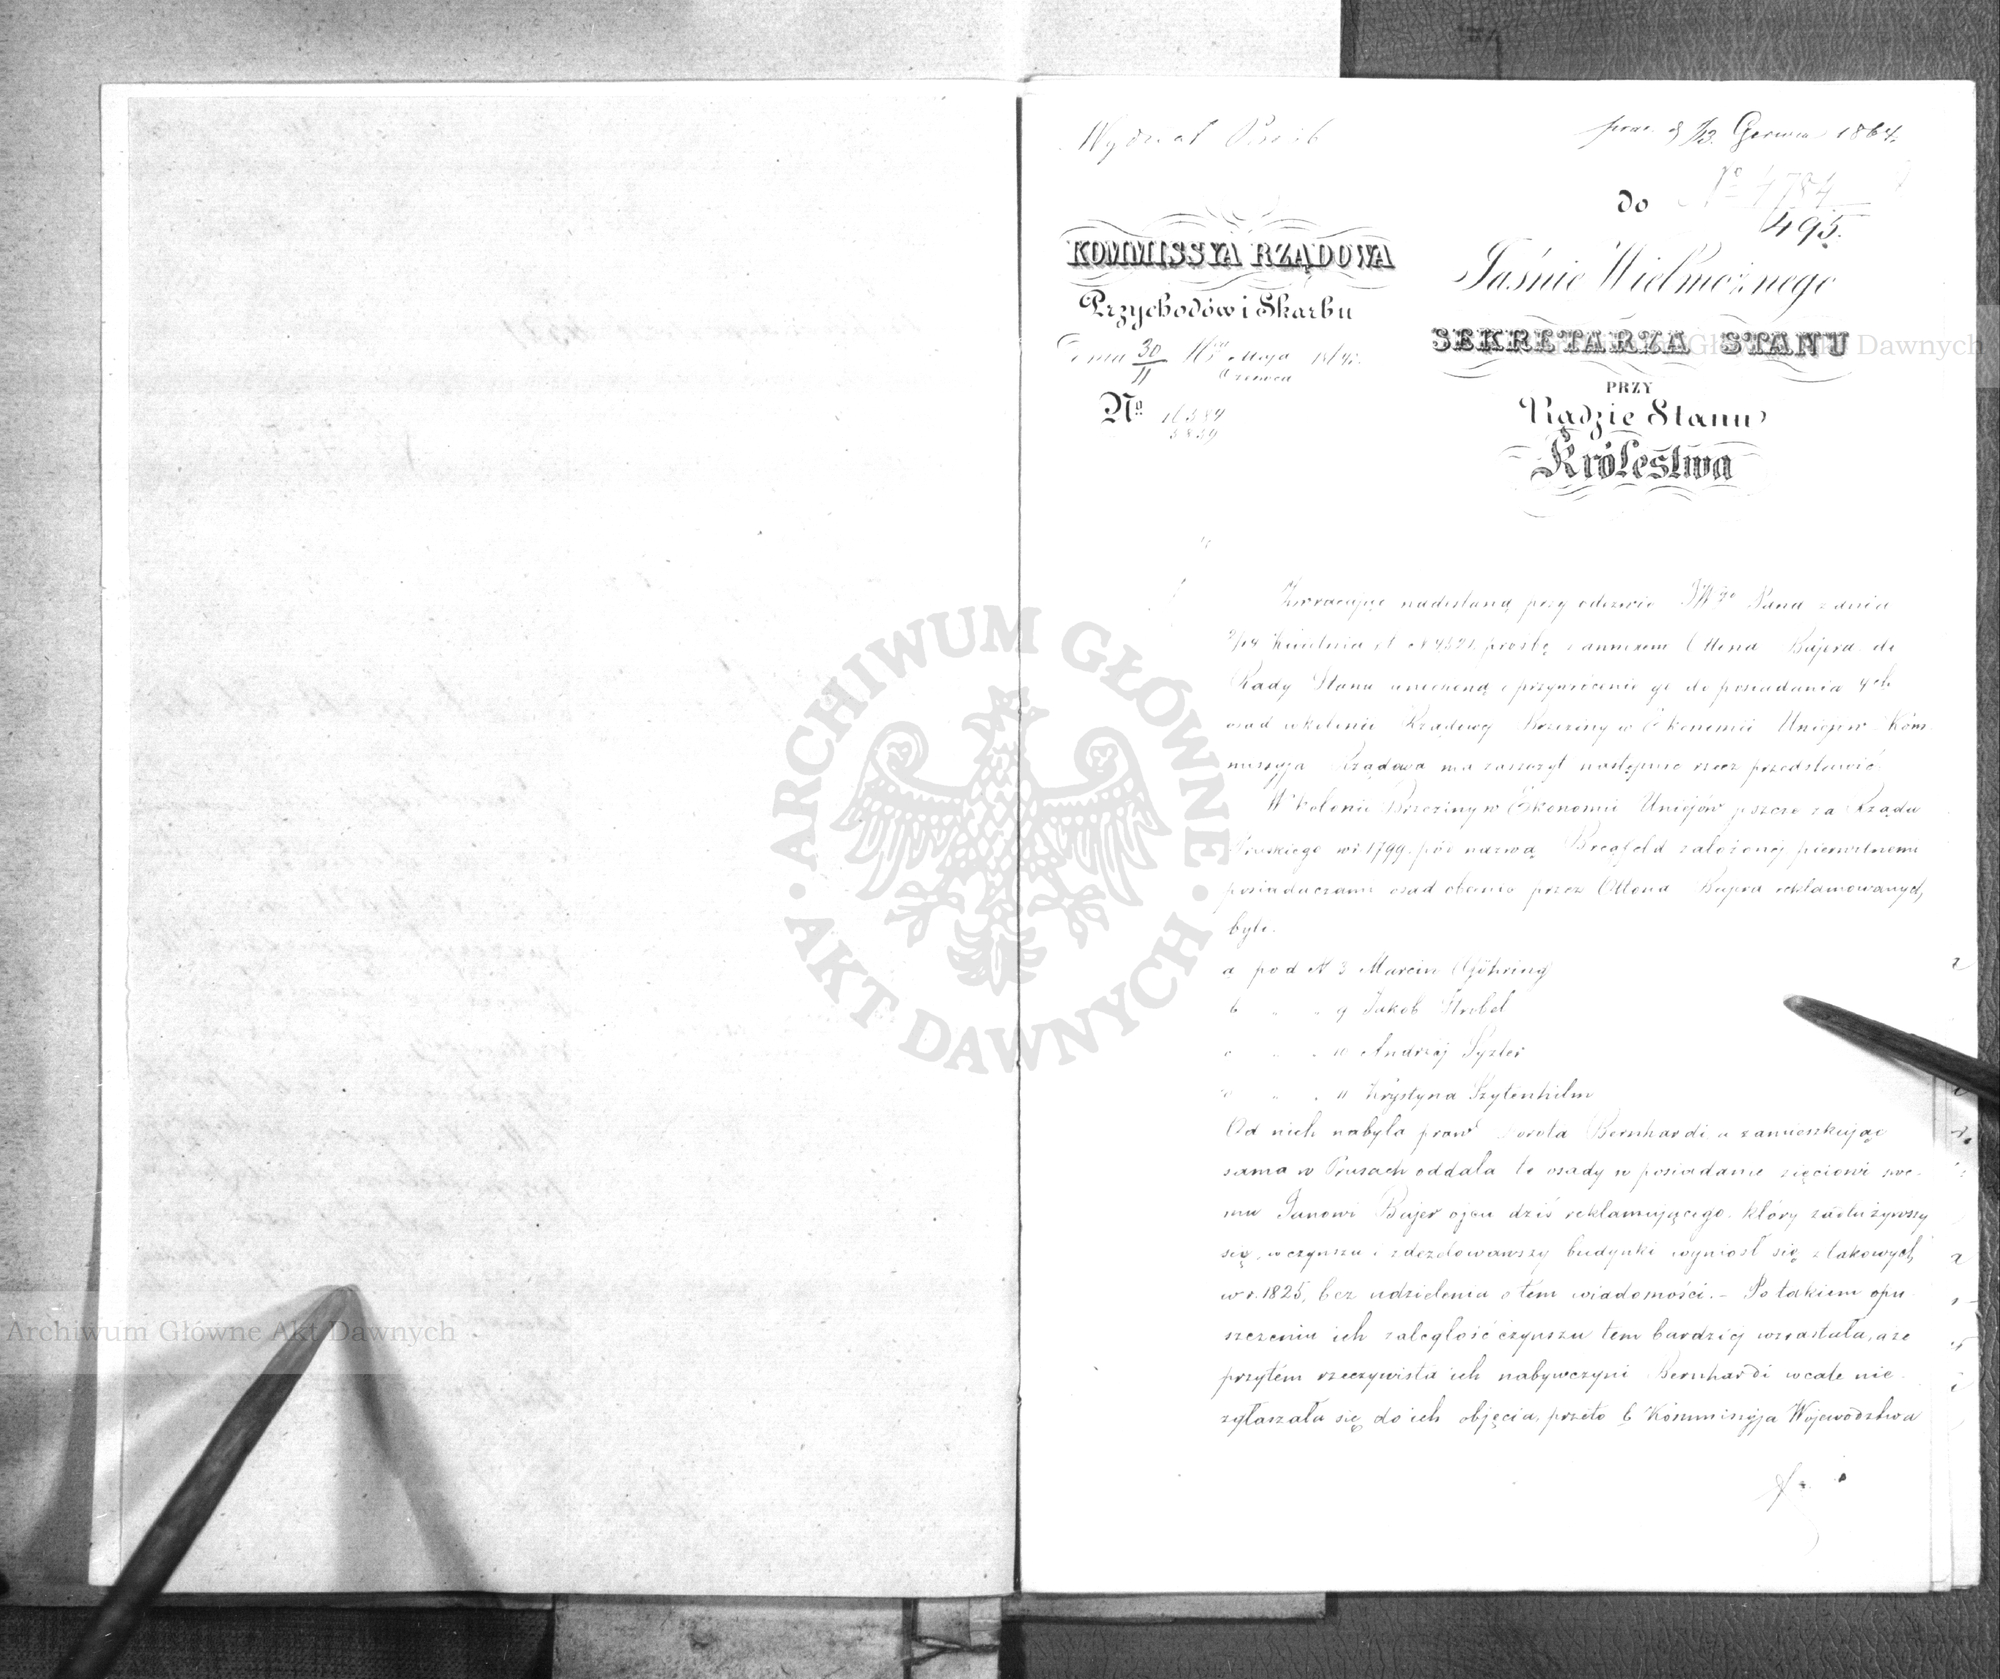 prez. d 1/13. Czerwca 1864.
Wydział
do
№ 4784
495.
KOMMISSYA RZĄDOWA
Przychodów i Skarbu
Dnia 30/11 Maja Czerwca 1864.
№ 16384
5839
Jaśnie Wielmożnego
SEKRETARZA STANU
PRZY
Radzie Stanu
Królestwa
Zwracając nadesłaną przy odezwie JWgo Pana z dnia
Kwietnia prośbę z annexem Ottona Bajera do
Rady Stanu wniesioną o przywrócenie go do posiadania 4ch
osad w kolonii Rządowej Brzeziny w Ekonomii Uniejów Kom-
missyja Rządowa ma zaszczyt następnie rzecz przedstawić.
W kolonii Brzeziny w Ekonomii Uniejów jeszcze za Rządu
Pruskiego w r. 1799. pod nazwą założonej pierwotnemi
posiadaczami osad obecnie przez Ottona Bajera reklamowanych,
byli.
a pod N 3 Marcin Göhring
b " " 9 Jakob Strobel
c " " 10 Andrzej Syzler
d " " 11 Krystyna Szytenhilm
Od nich nabyła prawo Dorota Bernhardi a zamieszkując
sama w Prusach oddała te osady w posiadanie zięciowi swe-
mu Janowi Bajer ojcu dziś reklamującego. który zadłużywszy
się w czynszu i zdezelowawszy budynki wyniosł się z takowych
w r. 1825, bez udzielenia o tem wiadomości. – Po takiem opu-
szczeniu ich zaległość czynszu tem bardziej wzrastała, a że
przytem rzeczywista ich nabywczyni Bernhardi wcale nie
zgłaszała się do ich objęcia, przeto b Kommissyja Województwa
ARCHIWUM GŁÓWNE
AKT DAWNYCH
Archiwum Główne Akt Dawnych
Archiwum Główne Akt Dawnych